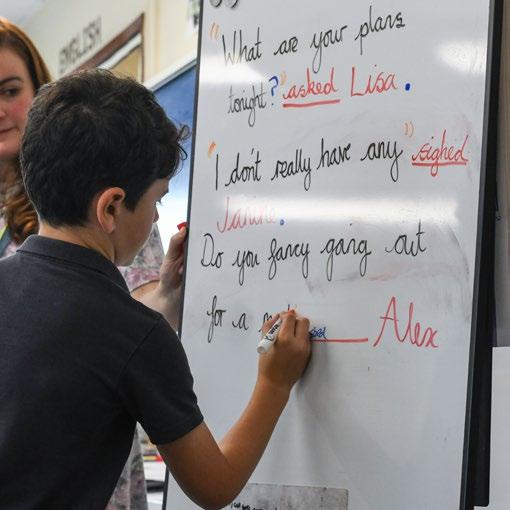 ENGLISH
"What are your plans
tonight?" asked Lisa.
"I don't really have any" sighed
Janine.
Do you fancy going out
for a
Alex